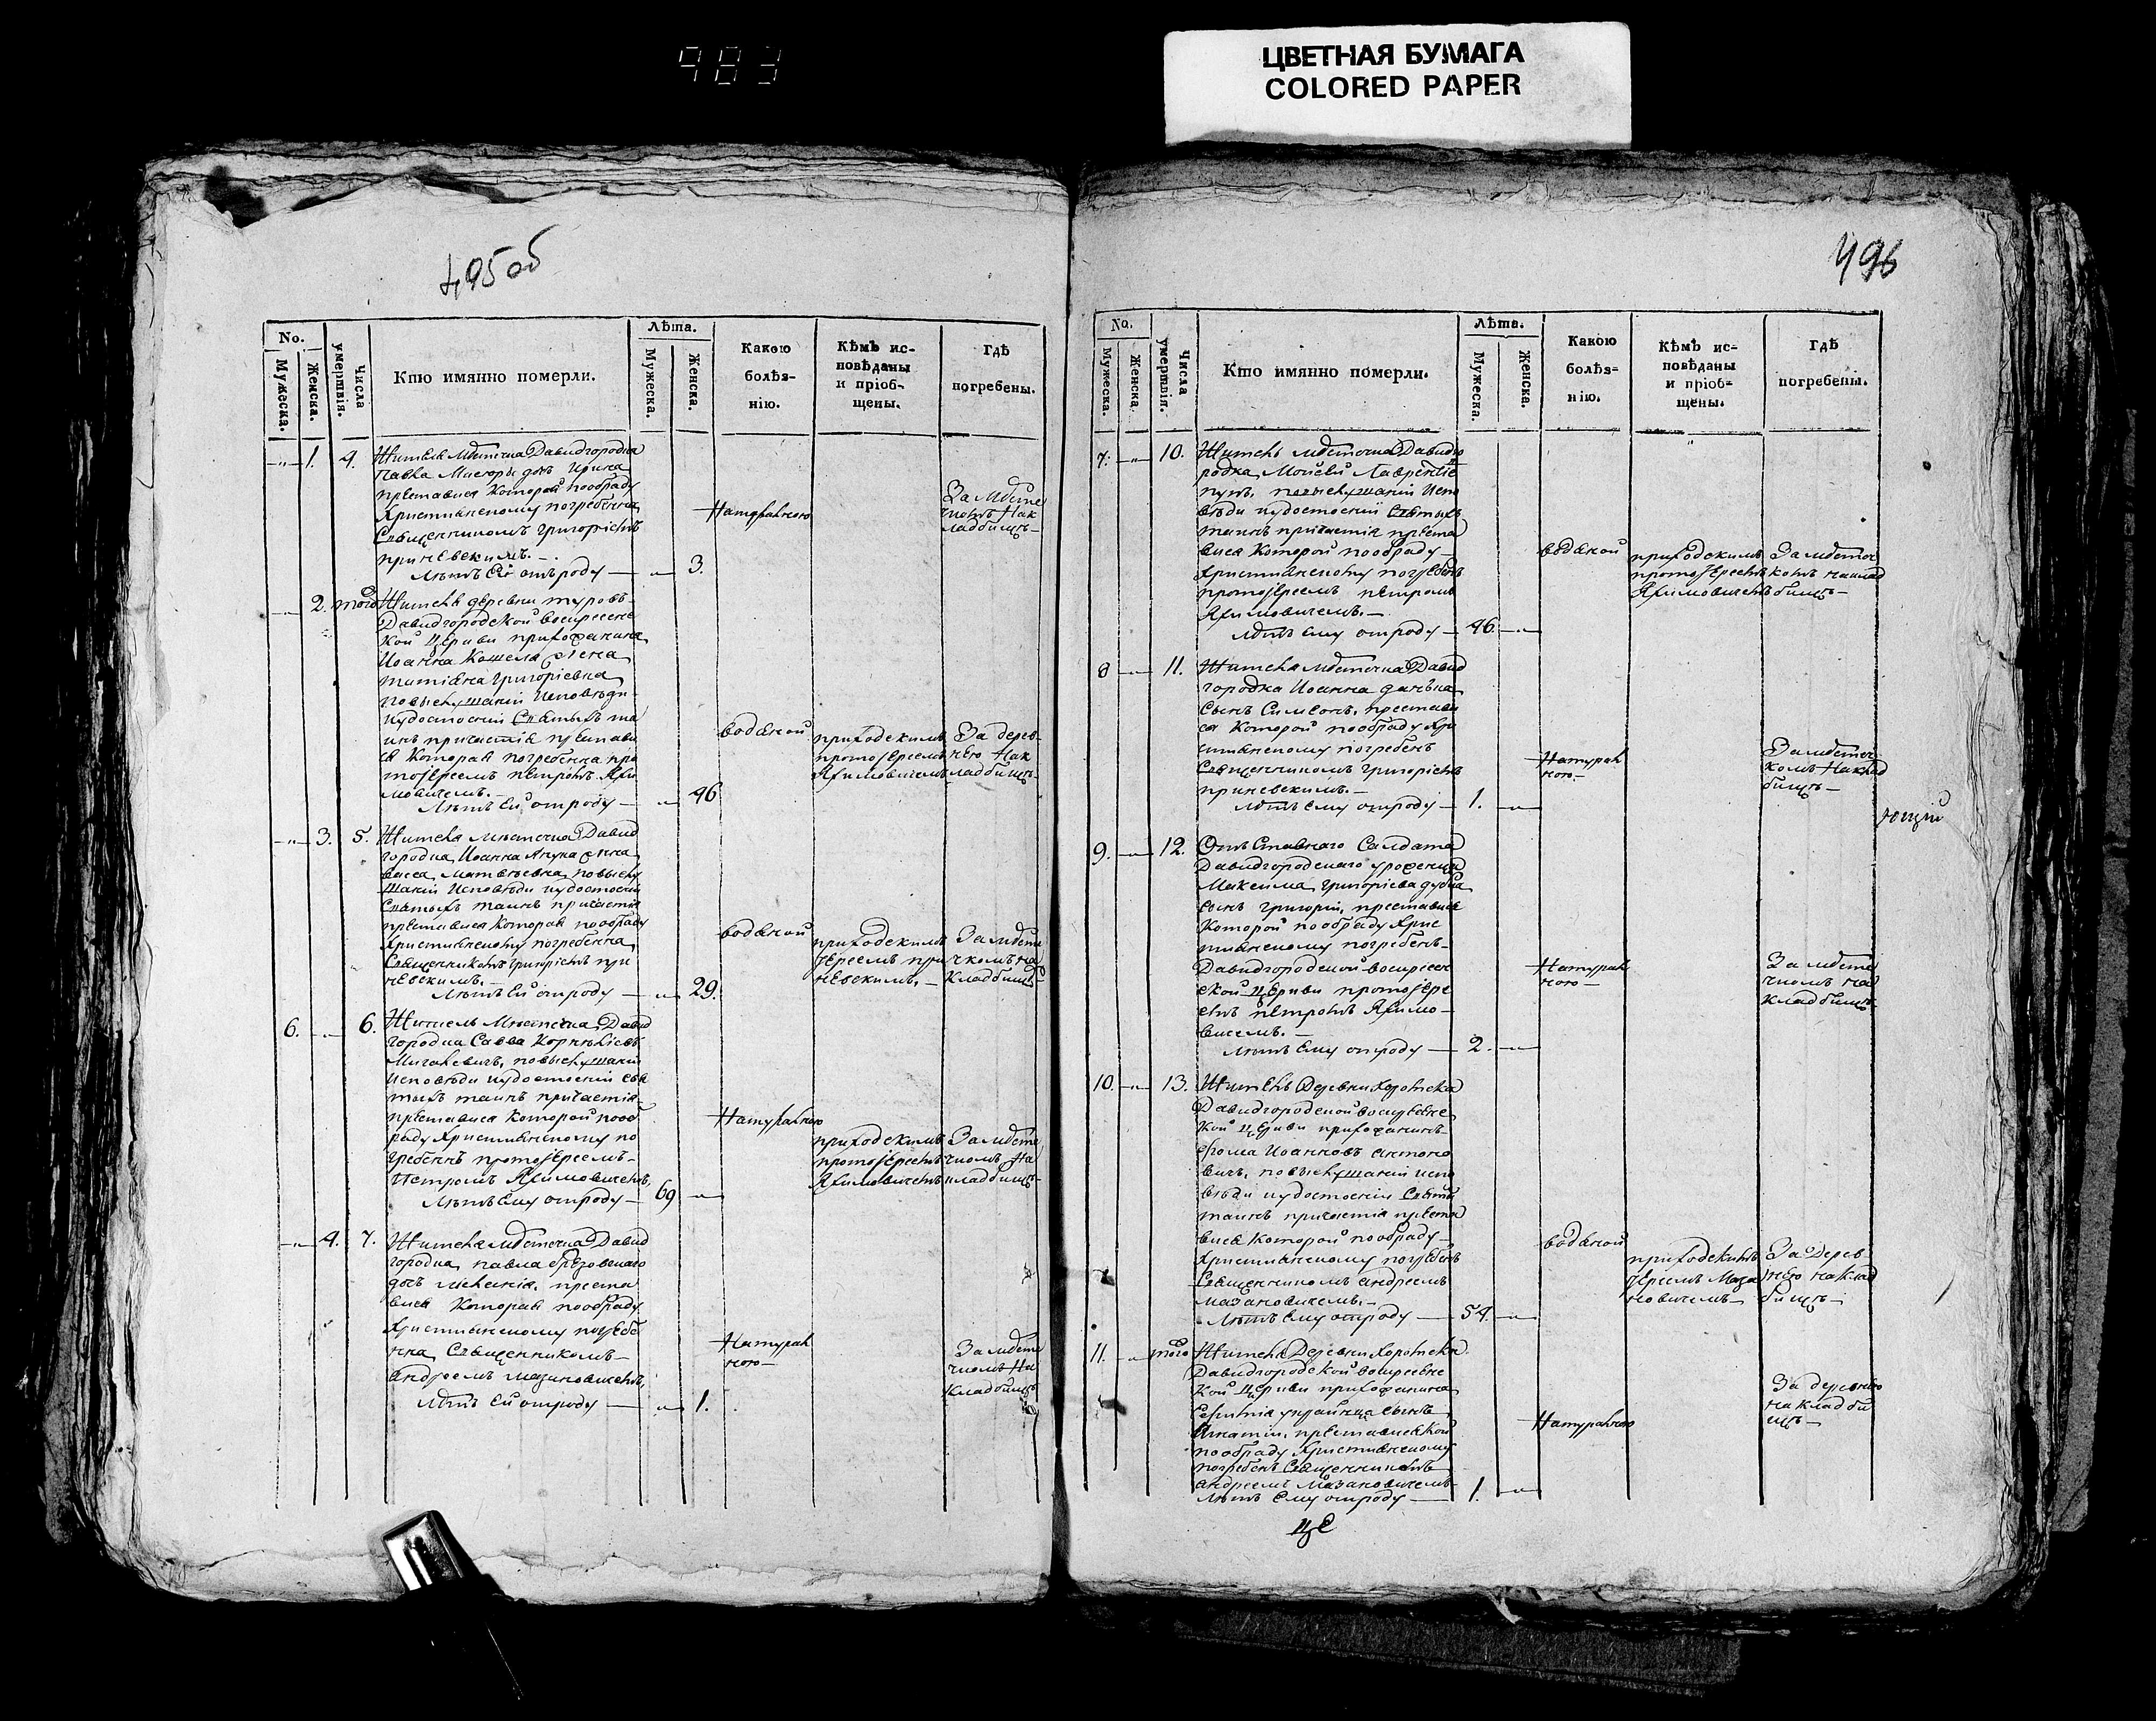 983
ЦВЕТНАЯ БУМАГА
COLORED PAPER
495об
No.
Мужеска.
Женска.
Числа умертвія.
Кто имянно померли.
Лѣта.
Мужеска.
Женска.
Какою болѣз-
нію.
Кѣмъ ис-
повѣданы
и пріоб-
щены.
Гдѣ
погребены.
1. 4. Жителя мѣстечка Давидгородка
Павла дочь Ирина
преставися которой пообряду
Христианскому погребенна
Священникомъ Григоріемъ
Лѣтъ Ей отъроду — 3.
Натуральною
За мѣсте
чкомъ Нак
ладбищѣ —
2. того Жителя деревни туровъ
Давидгородской воскресенс
кой церкви прихожанина
Иоанна Кошеля жена
татіяна григоріевна
повыслушаніи Исповѣди
иудостоеніи Святыхъ та
инъ причастія престави
ся Которая погребенна про
тоіереемъ петромъ Яхи
мовичемъ. —
Лѣтъ Ей отроду — 46
водяной
приходскимъ
протоіереемъ
Яхимовичемъ
За дерев-
нею Нак
ладбищѣ-
3. 5. Жителя мѣстечка Давид
городка, Иоанна жена
Матвѣевна, повыслу
шаніи Исповѣди иудостоеніи
Святыхъ таинъ причастія
преставися Которая пообряду
Христианскому погребенна
Священникомъ Григоріемъ
Лѣтъ Ей отроду — 29.
водяной
приходскимъ
За мѣсте
чкомъ на
кладбищѣ
6. 6. Житель мѣстечка Давид
городка Савва
повыслушаніи
Исповѣди иудостоеніи свя
тыхъ таинъ причастія
преставися Которой пооб
ряду Христианскому по
гребеннъ протоіереемъ
Петромъ Яхимовичемъ,
Лѣтъ Ему отроду — 69
Натуральною
приходскимъ
протоіереемъ
Яхимовичемъ
За мѣсте
чкомъ На
кладбищѣ-
4. 7. Жителя мѣстечка Давид
городка, павла
дочь преста
вися Которая пообряду
Христианскому погребе
нна Священникомъ —
Андреемъ мазановичемъ,
Лѣтъ Ей отроду — 1.
Натураль
ною —
За мѣсте
чкомъ На
кладбищѣ
496
No.
Мужеска.
Женска.
Числа умертвія.
Кто имянно померли.
Лѣта.
Мужеска.
Женска.
Какою
болѣз=
нію.
Кѣмъ ис=
повѣданы
и пріоб=
щены.
Гдѣ
погребены.
7. 10. Житель мѣстечка Давидго
родка, Моисей
повыслушаніи Испо
вѣди иудостоеніи Святыхъ
таинъ причастія преста
вися Которой пообряду —
Христианскому погребенъ
протоіереемъ петромъ
Яхимовичемъ. —
Лѣтъ Ему отроду — 46
водяной
приходскимъ
протоіереемъ
Яхимовичемъ
За мѣстеч
комъ наклад
бищѣ —
8 11. Жителя мѣстечка Давид
городка Иоанна
Сынъ Симеонъ, престави
ся Которой пообряду Хри
стианскому погребенъ
Священникомъ Григоріемъ
Лѣтъ Ему отроду — 1.
Натураль
ною —
За мѣстеч
комъ Наклад
бищѣ —
9. 12. Отъ Ставнаго Салдата
Давидгородскаго уроженца
Максима Григоріева
сынъ Григорій, преставися
Которой пообряду Хрис
тианскому погребенъ —
Давидгородской воскресен
ской церкви протоіере
емъ петромъ Яхимо —
вичемъ. —
Лѣтъ Ему отроду — 2.
Натураль
ною —
За мѣсте
чкомъ На
кладбищѣ
10. 13. Житель Деревни
Давидгородской воскресенс
кой церкви прихожанинъ
Иоанновъ антоно
вичъ, повыслушаніи испо
вѣди иудостоеніи Святыхъ
таинъ причастія преста
вися Которой пообряду —
Христианскому погребенъ
Священникомъ андреемъ
мазановичемъ. —
Лѣтъ Ему отроду — 54.
водяной
приходскимъ
іереемъ Маза
новичемъ —
За Дерев
нею наклад
бищѣ —
11. того Жителя Деревни
Давидгородской воскресенс
кой церкви прихожанина
сынъ
Игнатій, преставися Кой
пообряду Христианскому
погребенъ Священникомъ
андреемъ Мазановичемъ
Лѣтъ Ему отроду — 1.
Натуральною
За деревнею
накладби
щѣ —
ющій